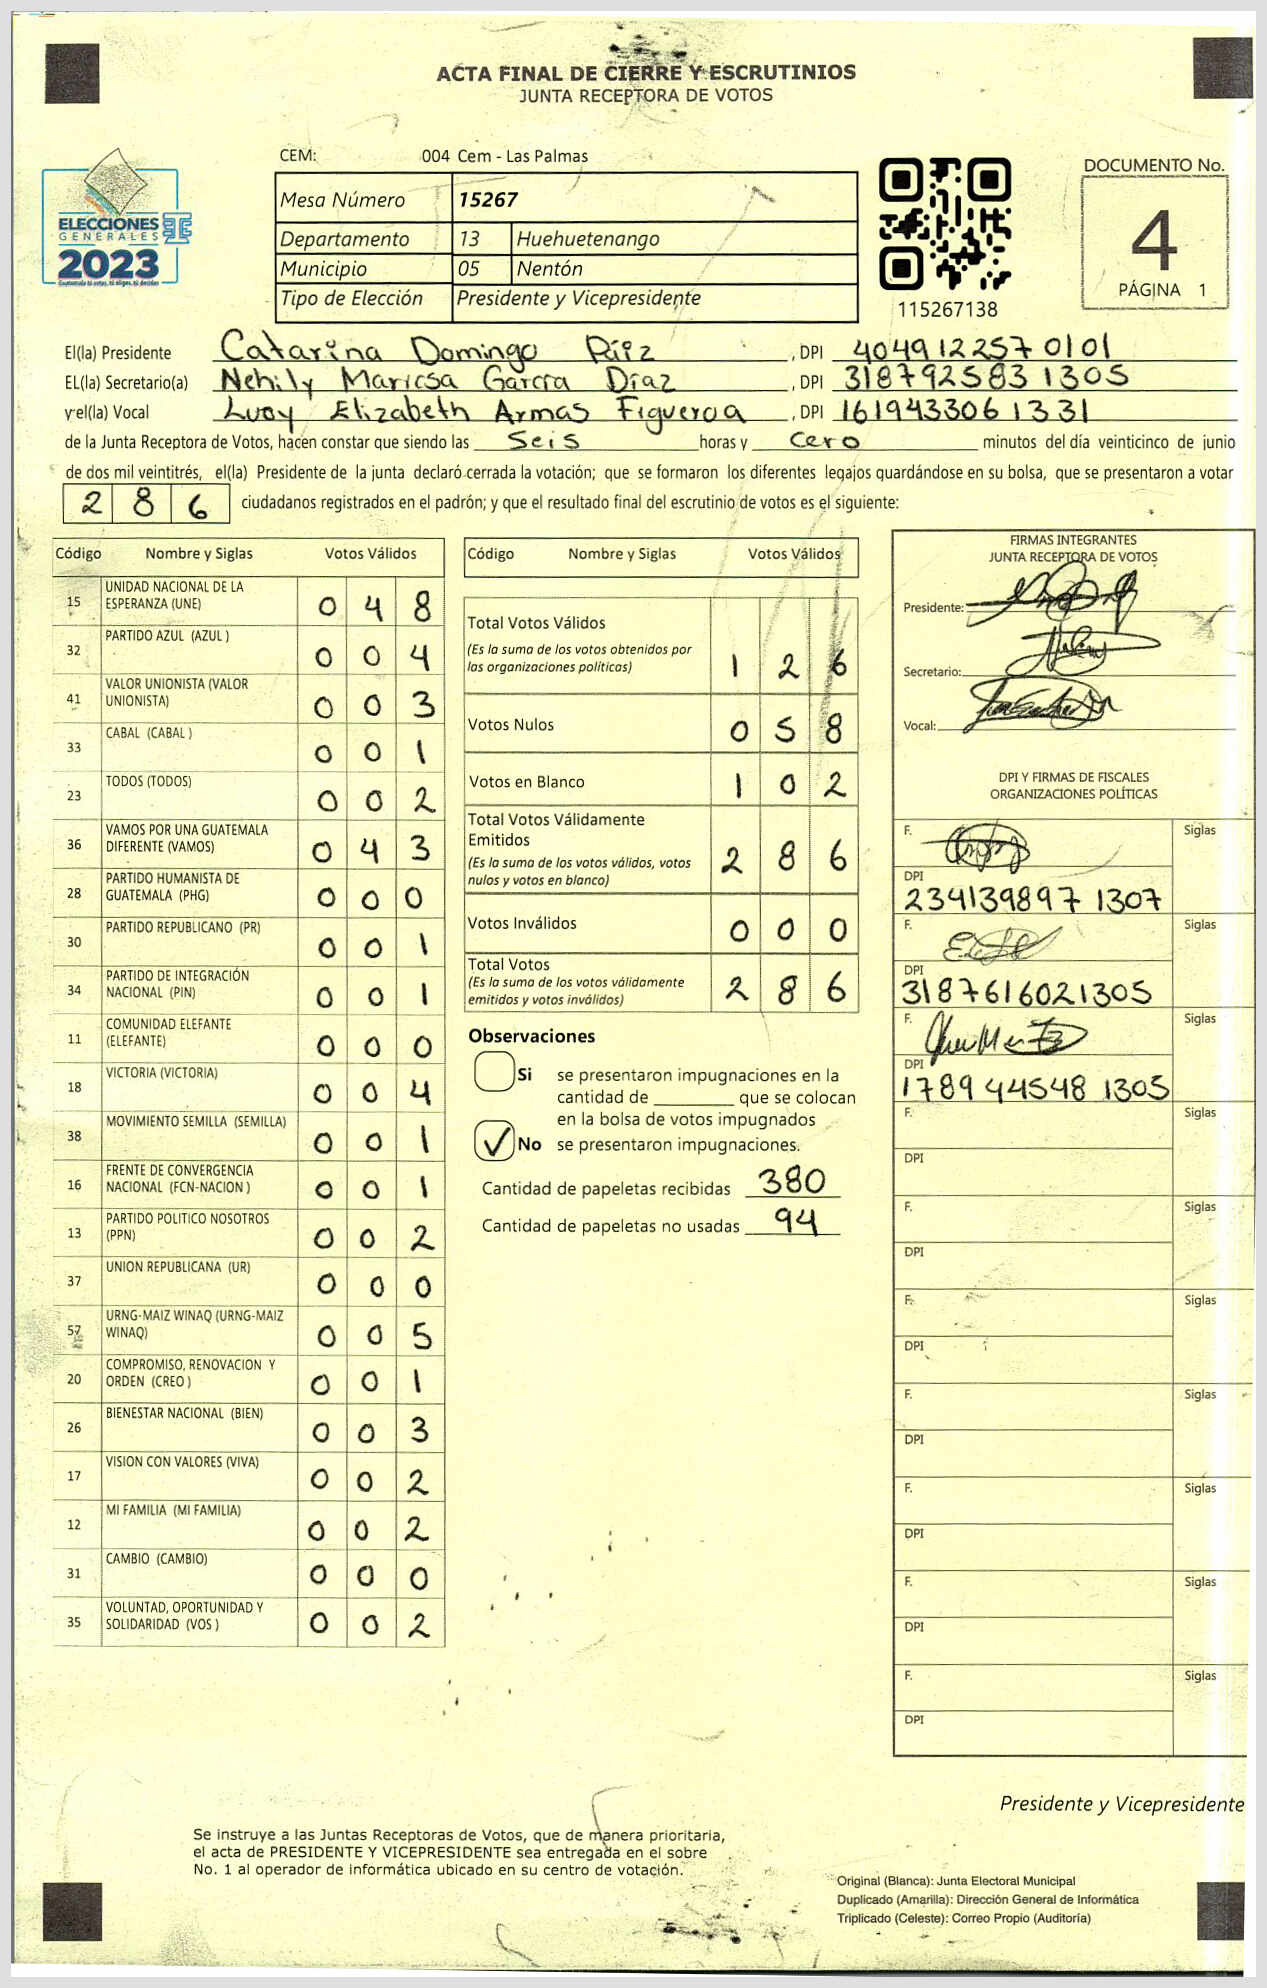 ACTA FINAL DE CIERRE Y ESCRUTINIOS
JUNTA RECEPTORA DE VOTOS
ELECCIONES
GENERALES
2023
CEM: 004 Cem - Las Palmas
Mesa Número 15267
Departamento 13 Huehuetenango
Municipio 05 Nentón
Tipo de Elección Presidente y Vicepresidente
115267138
DOCUMENTO No.
4
PÁGINA 1
El(la) Presidente Catarina Domingo Páiz , DPI 404912257 0101
EL(la) Secretario(a) Nehily Maricsa García Díaz , DPI 318792583 1305
y el(la) Vocal Lucy Elizabeth Armas Figueroa , DPI 161943306 1331
de la Junta Receptora de Votos, hacen constar que siendo las Seis horas y Cero minutos del día veinticinco de junio
de dos mil veintitrés, el(la) Presidente de la junta declaró cerrada la votación; que se formaron los diferentes legajos quardándose en su bolsa, que se presentaron a votar
2 8 6 ciudadanos registrados en el padrón; y que el resultado final del escrutinio de votos es el siguiente:
Código Nombre y Siglas Votos Válidos
15 UNIDAD NACIONAL DE LA ESPERANZA (UNE) 0 4 8
32 PARTIDO AZUL (AZUL ) 0 0 4
41 VALOR UNIONISTA (VALOR UNIONISTA) 0 0 3
33 CABAL (CABAL ) 0 0 1
23 TODOS (TODOS) 0 0 2
36 VAMOS POR UNA GUATEMALA DIFERENTE (VAMOS) 0 4 3
28 PARTIDO HUMANISTA DE GUATEMALA (PHG) 0 0 0
30 PARTIDO REPUBLICANO (PR) 0 0 1
34 PARTIDO DE INTEGRACIÓN NACIONAL (PIN) 0 0 1
11 COMUNIDAD ELEFANTE (ELEFANTE) 0 0 0
18 VICTORIA (VICTORIA) 0 0 4
38 MOVIMIENTO SEMILLA (SEMILLA) 0 0 1
16 FRENTE DE CONVERGENCIA NACIONAL (FCN-NACION ) 0 0 1
13 PARTIDO POLITICO NOSOTROS (PPN) 0 0 2
37 UNION REPUBLICANA (UR) 0 0 0
57 URNG-MAIZ WINAQ (URNG-MAIZ WINAQ) 0 0 5
20 COMPROMISO, RENOVACION Y ORDEN (CREO ) 0 0 1
26 BIENESTAR NACIONAL (BIEN) 0 0 3
17 VISION CON VALORES (VIVA) 0 0 2
12 MI FAMILIA (MI FAMILIA) 0 0 2
31 CAMBIO (CAMBIO) 0 0 0
35 VOLUNTAD, OPORTUNIDAD Y SOLIDARIDAD (VOS ) 0 0 2
Código Nombre y Siglas Votos Válidos
Total Votos Válidos
(Es la suma de los votos obtenidos por
las organizaciones políticas) 1 2 6
Votos Nulos 0 5 8
Votos en Blanco 1 0 2
Total Votos Válidamente
Emitidos
(Es la suma de los votos válidos, votos
nulos y votos en blanco) 2 8 6
Votos Inválidos 0 0 0
Total Votos
(Es la suma de los votos válidamente
emitidos y votos inválidos) 2 8 6
Observaciones
Si se presentaron impugnaciones en la
cantidad de ________ que se colocan
en la bolsa de votos impugnados
No se presentaron impugnaciones.
Cantidad de papeletas recibidas 380
Cantidad de papeletas no usadas 94
FIRMAS INTEGRANTES
JUNTA RECEPTORA DE VOTOS
Presidente:
Secretario:
Vocal:
DPI Y FIRMAS DE FISCALES
ORGANIZACIONES POLÍTICAS
F. Siglas
DPI
234139897 1307
F. Siglas
DPI
3187616021305
F. Siglas
DPI
1789 44548 1305
F. Siglas
DPI
F. Siglas
DPI
F. Siglas
DPI
F. Siglas
DPI
F. Siglas
DPI
F. Siglas
DPI
F. Siglas
DPI
Presidente y Vicepresidente
Se instruye a las Juntas Receptoras de Votos, que de manera prioritaria,
el acta de PRESIDENTE Y VICEPRESIDENTE sea entregada en el sobre
No. 1 al operador de informática ubicado en su centro de votación.
Original (Blanca): Junta Electoral Municipal
Duplicado (Amarilla): Dirección General de Informática
Triplicado (Celeste): Correo Propio (Auditoría)